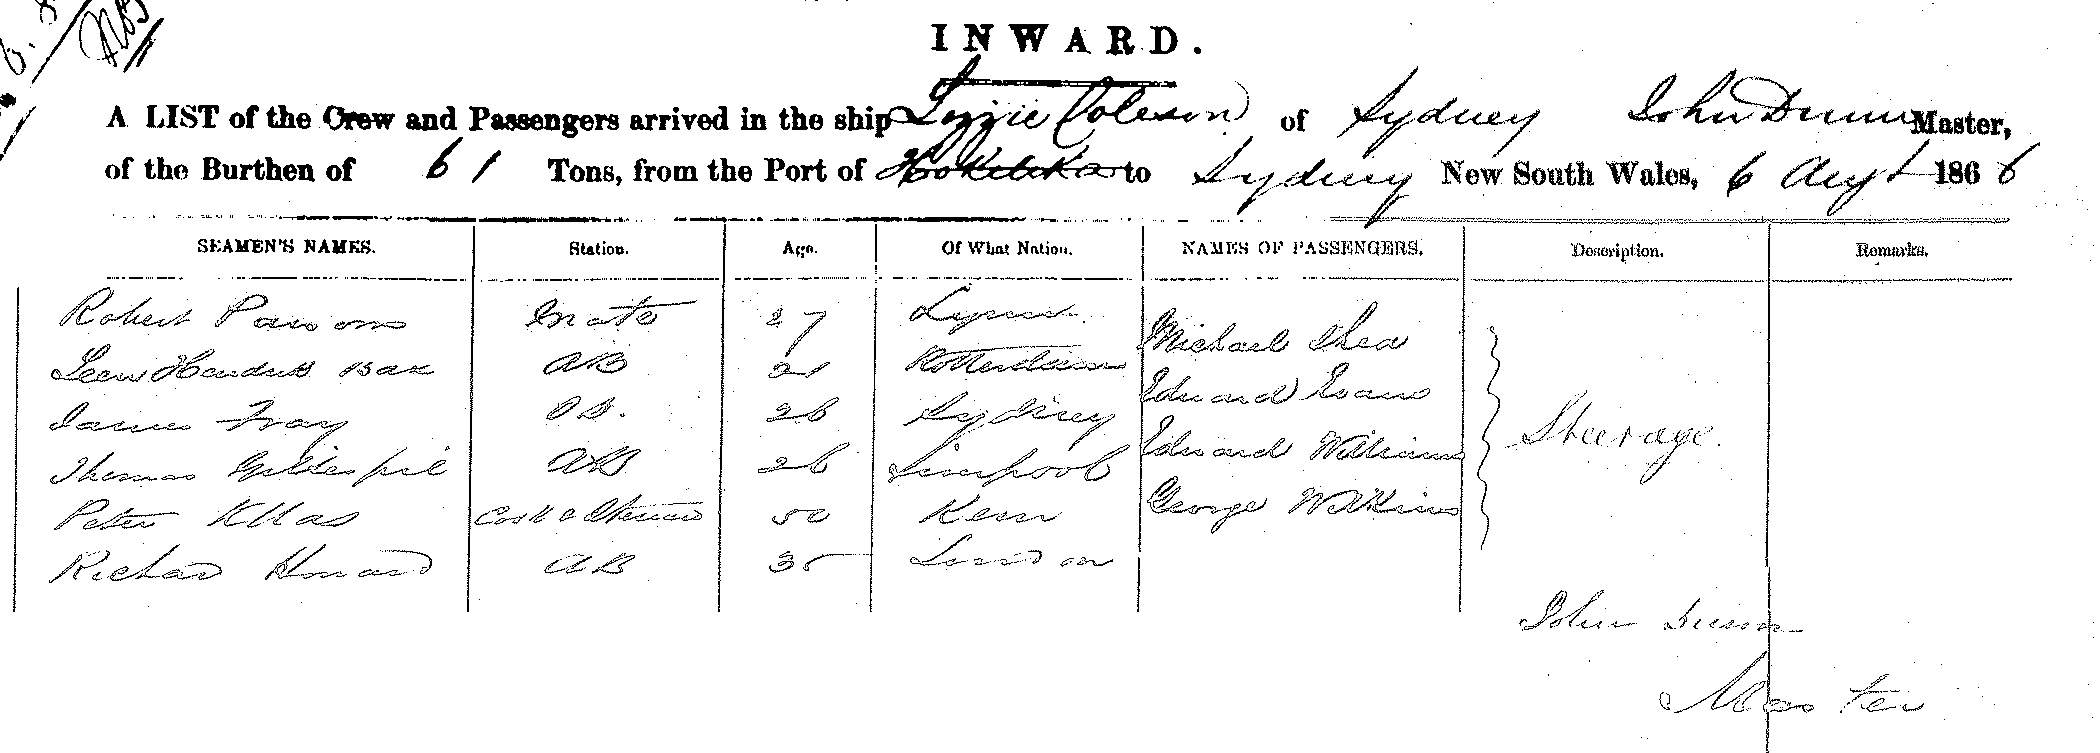 INWARD.
A LIST of the Crew and Passengers arrived in the ship Lizzie Coleson of Sydney John Dunn Master,
of the Burthen of 61 Tons, from the Port of Hokitika to Sydney New South Wales, 6 Augt 1866
SEAMEN'S NAMES. Station. Age. Of What Nation. NAMES OF PASSENGERS. Description. Remarks.
Robert Parsons Mate 27 Lynn
Michael Shea
Leen Bax AB 21 Rotterdam
Edward Evans
James Fray 26 Sydney
Steerage.
Edward Williams
Thomas Gillespie AB 26 Liverpool
George Wilkins
Peter Cook & Steward 50
Richard Howard AB 35 London
John Dunn
Master